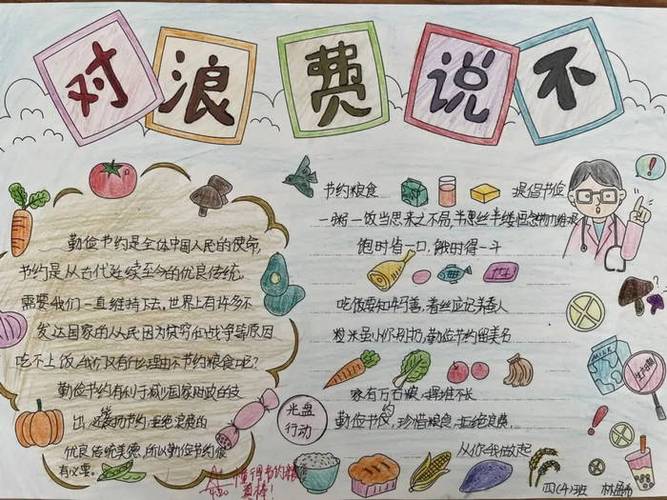 对浪费说不
勤俭节约是全体中国人民的使命,
节约是从古代延续至今的优良传统.
需要我们一直维持下去.世界上有许多不
发达国家的人民因为贫穷和战争等原因
吃不上饭,我们又有什么理由不节约粮食呢?
勤俭节约有利于减少国家财政的支
出,还
优良传统美德,所以勤俭节约很
有必要.
节约粮食
提倡节俭
一粥一饭当思来之不易,半丝半缕
饱时省一口,饿时得一斗
吃饭要知
粒米虽小 勤俭节约留美名
家有万石粮,
勤俭节约,珍惜粮食,拒绝浪费,
从你我做起
光盘
行动
MILK
懂得节约粮
真棒!
四(4)班 林